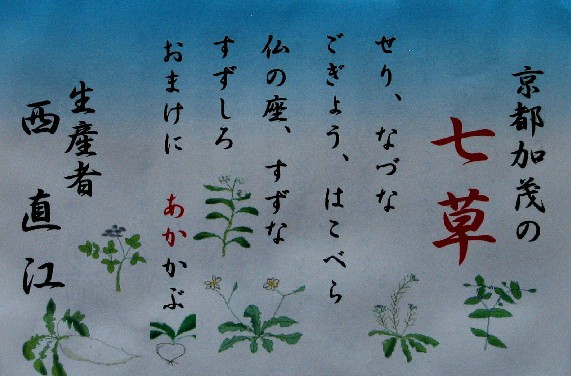 京都加茂の
七草
せり、なづな
ごぎょう、はこべら
仏の座、すずな
すずしろ
おまけに あかかぶ
生産者
西 直江